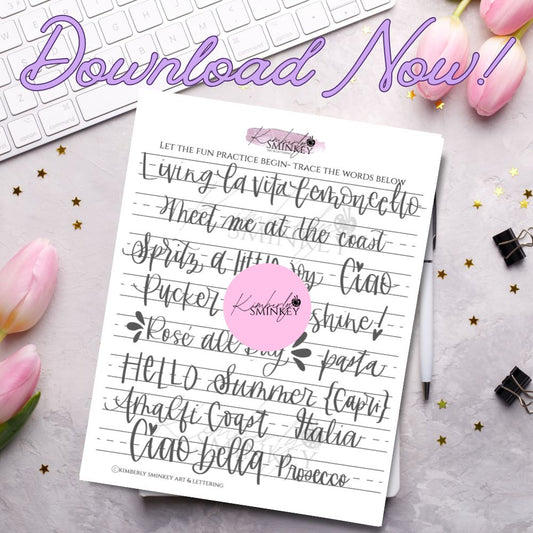 Download Now!
Kimberly
SMINKEY
LET THE FUN PRACTICE BEGIN- TRACE THE WORDS BELOW
Living la vita lemoncello
Meet me at the coast
Spritz a little joy Ciao
Pucker shine!
Kimberly
SMINKEY
Rosé all day pasta
HELLO Summer {Capri}
Amalfi Coast Italia
Ciao bella Prosecco
©KIMBERLY SMINKEY ART & LETTERING